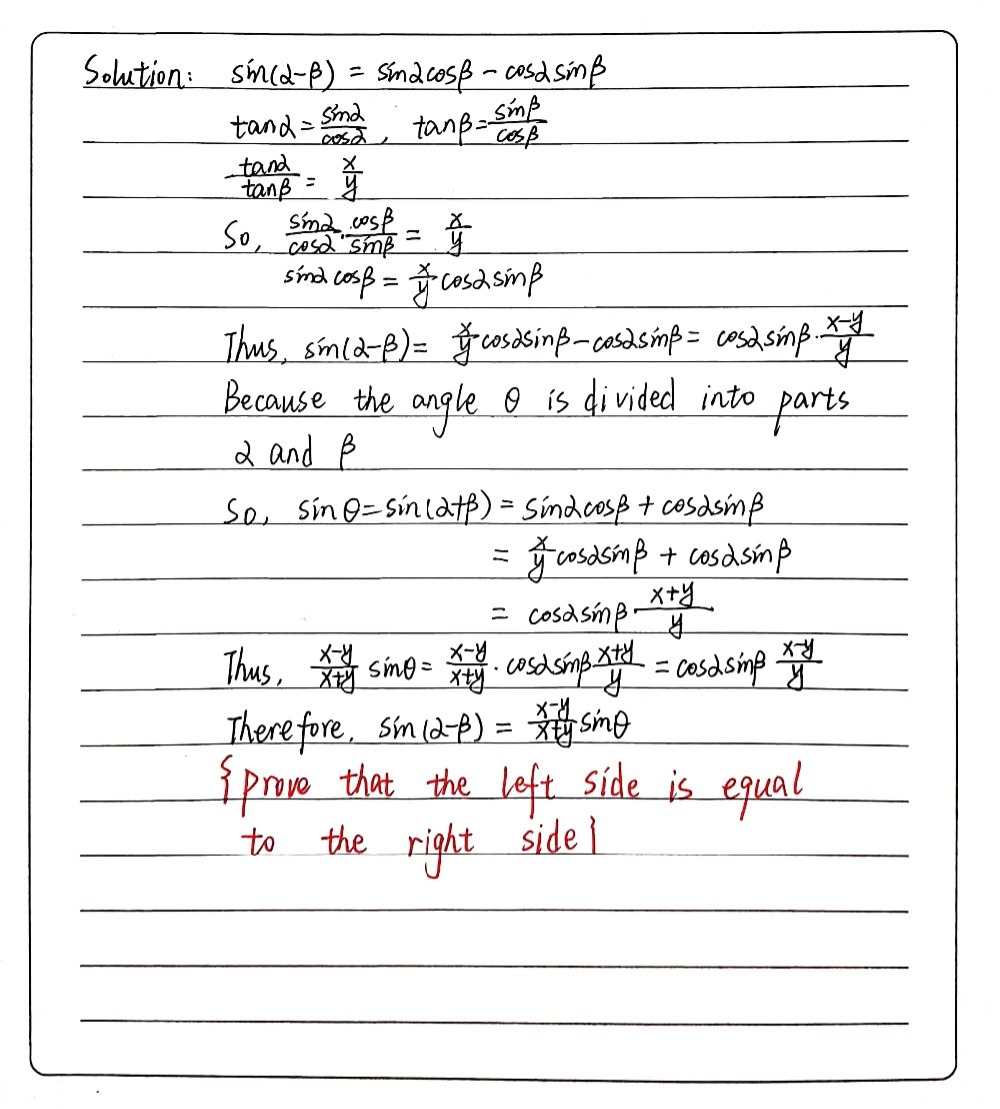 Solution: sin(α-β) = sinαcosβ - cosαsinβ
tanα = sinα/cosα, tanβ = sinβ/cosβ
tanα/tanβ = x/y
So, sinα/cosα · cosβ/sinβ = x/y
sinα cosβ = x/y cosαsinβ
Thus, sin(α-β) = x/y cosαsinβ - cosαsinβ = cosαsinβ · x-y/y
Because the angle θ is divided into parts
α and β
So, sinθ = sin(α+β) = sinαcosβ + cosαsinβ
= x/y cosαsinβ + cosαsinβ
= cosαsinβ · x+y/y
Thus, x-y/x+y sinθ = x-y/x+y · cosαsinβ x+y/y = cosαsinβ x-y/y
Therefore, sin(α-β) = x-y/x+y sinθ
{prove that the left side is equal
to the right side}